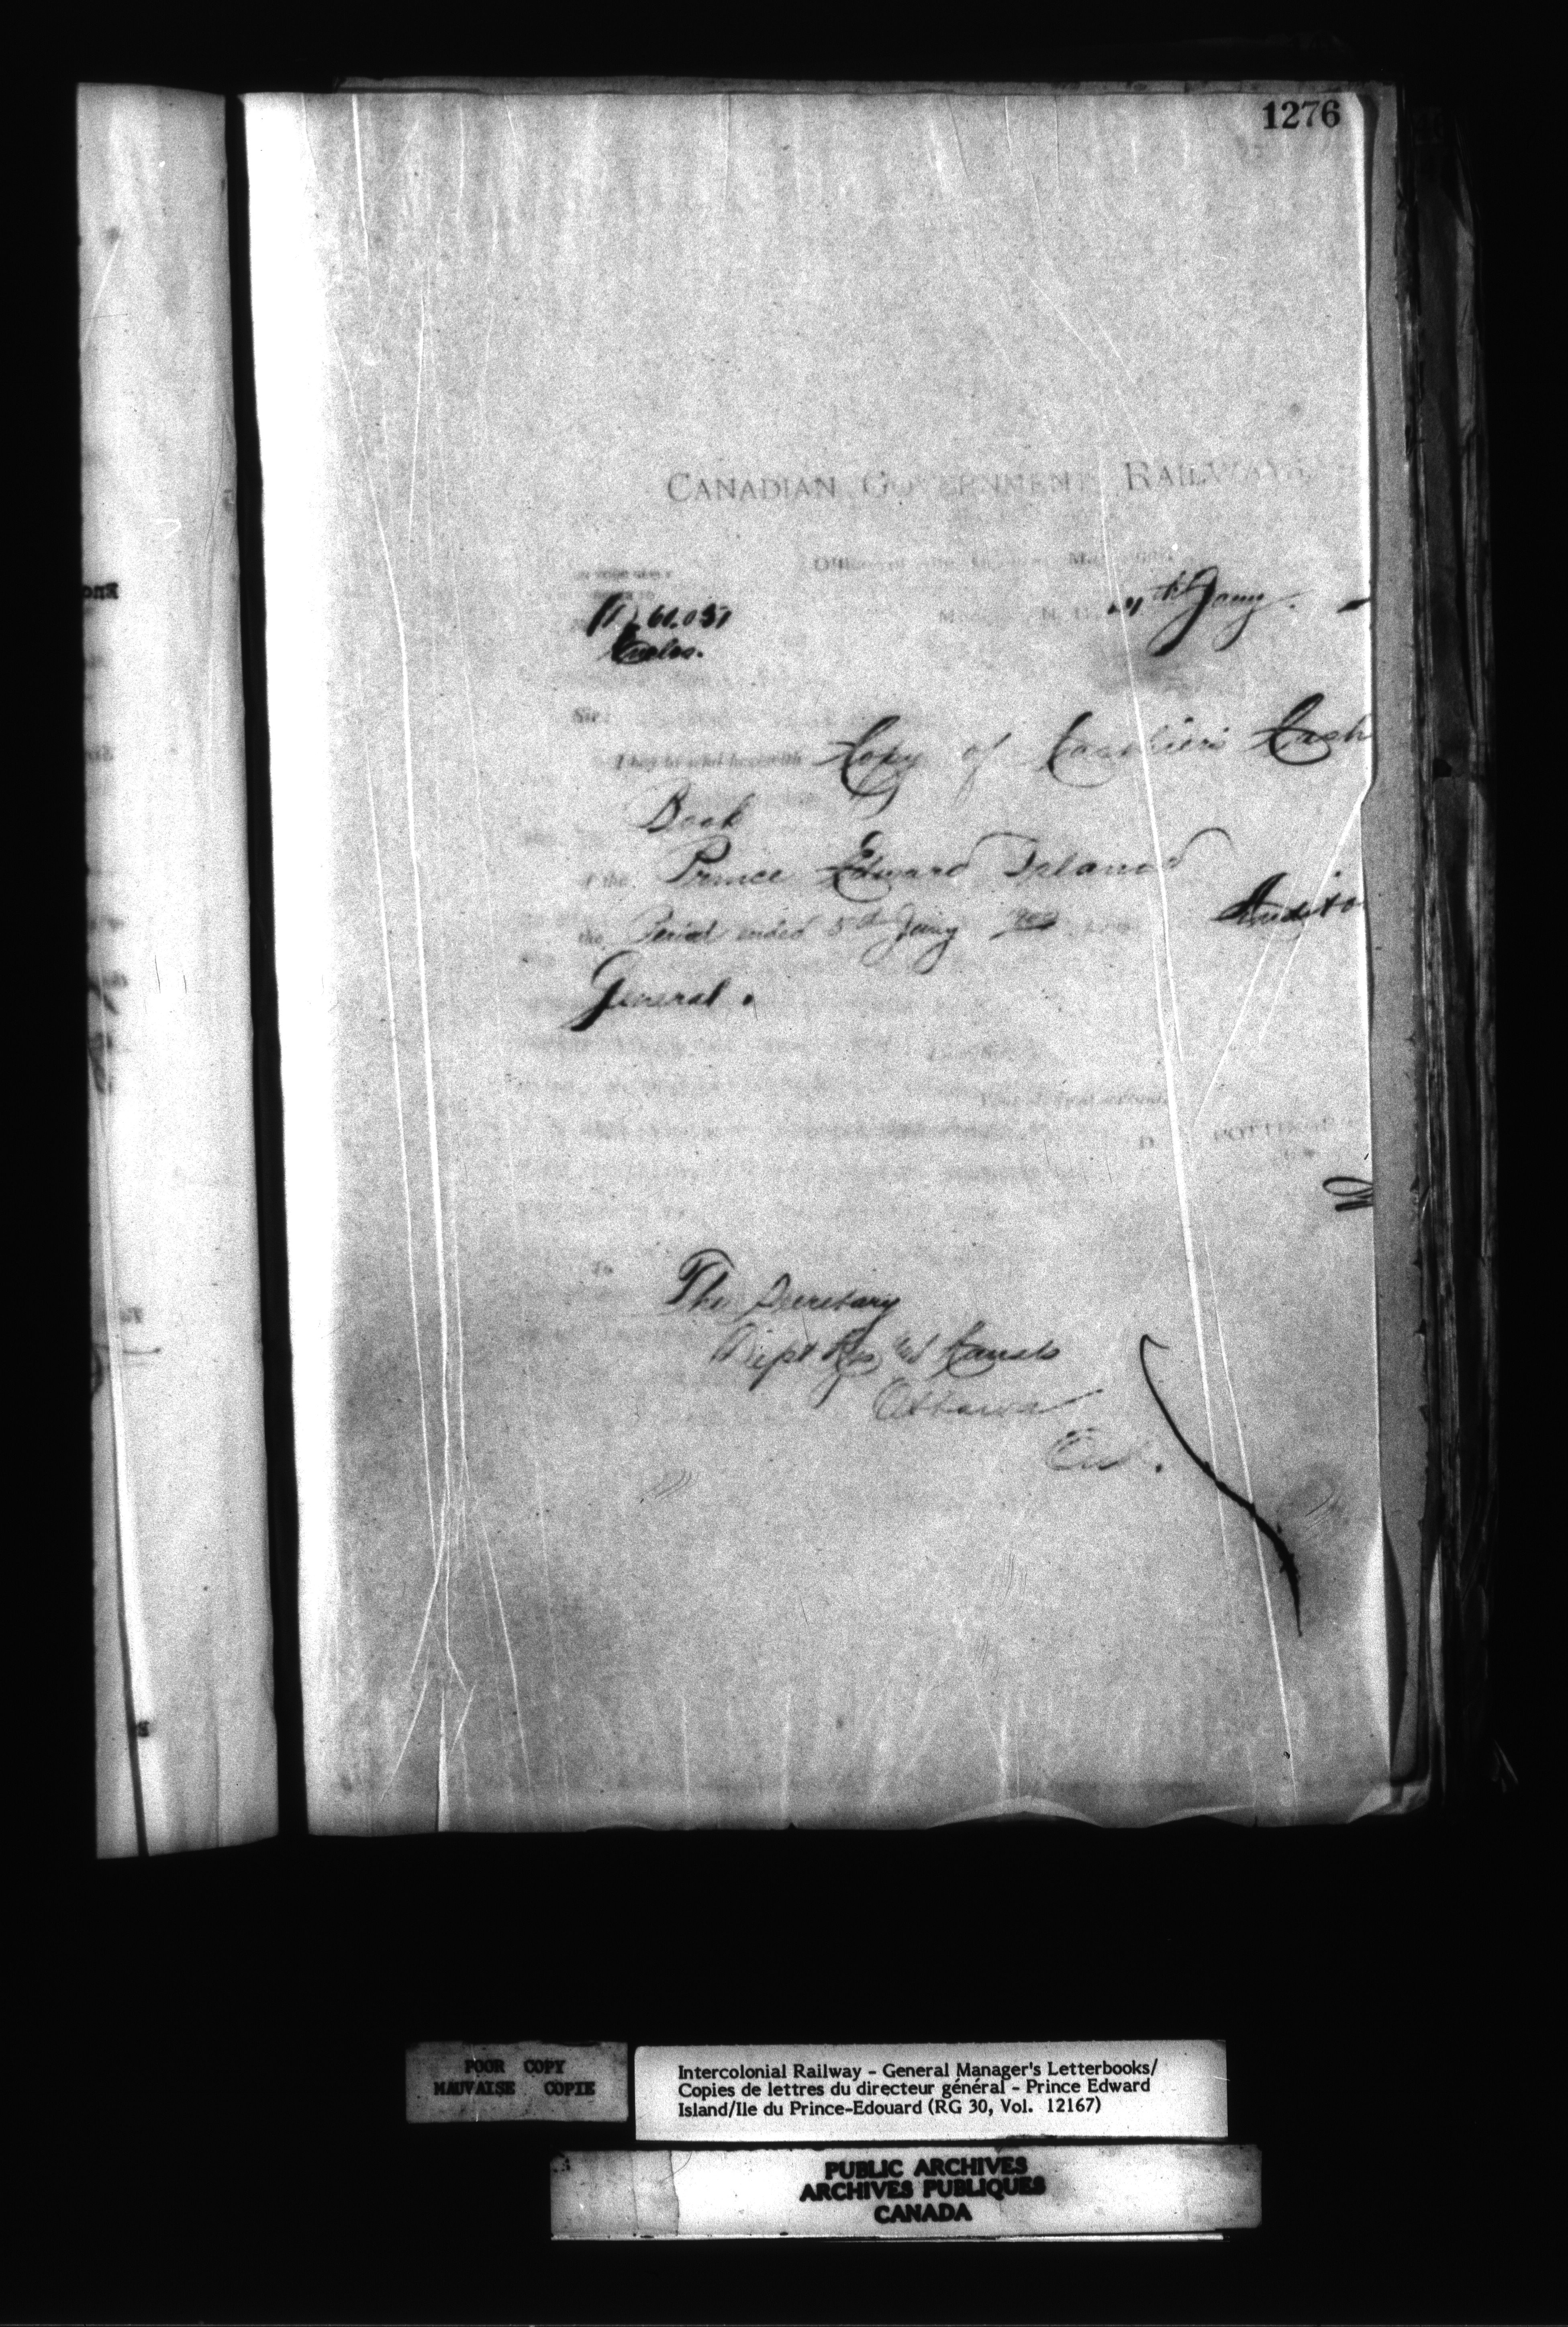 1276
CANADIAN GOVERNMENT RAILWAYS
Office of the General Manager,
61.037
Encles.
Moncton, N. B., 11th Jany.
Sir:
I beg to send herewith Copy of Cashier's Cash
Book
of the Prince Edward Island
the Period ended 5th Jany Audito
General.
Your obedient servant,
D. POTTINGER
To The Secretary
Dept Rys & Canals
Ottawa
Ont.
POOR COPY
MAUVAISE COPIE
Intercolonial Railway - General Manager's Letterbooks/
Copies de lettres du directeur général - Prince Edward
Island/Ile du Prince-Edouard (RG 30, Vol. 12167)
PUBLIC ARCHIVES
ARCHIVES PUBLIQUES
CANADA